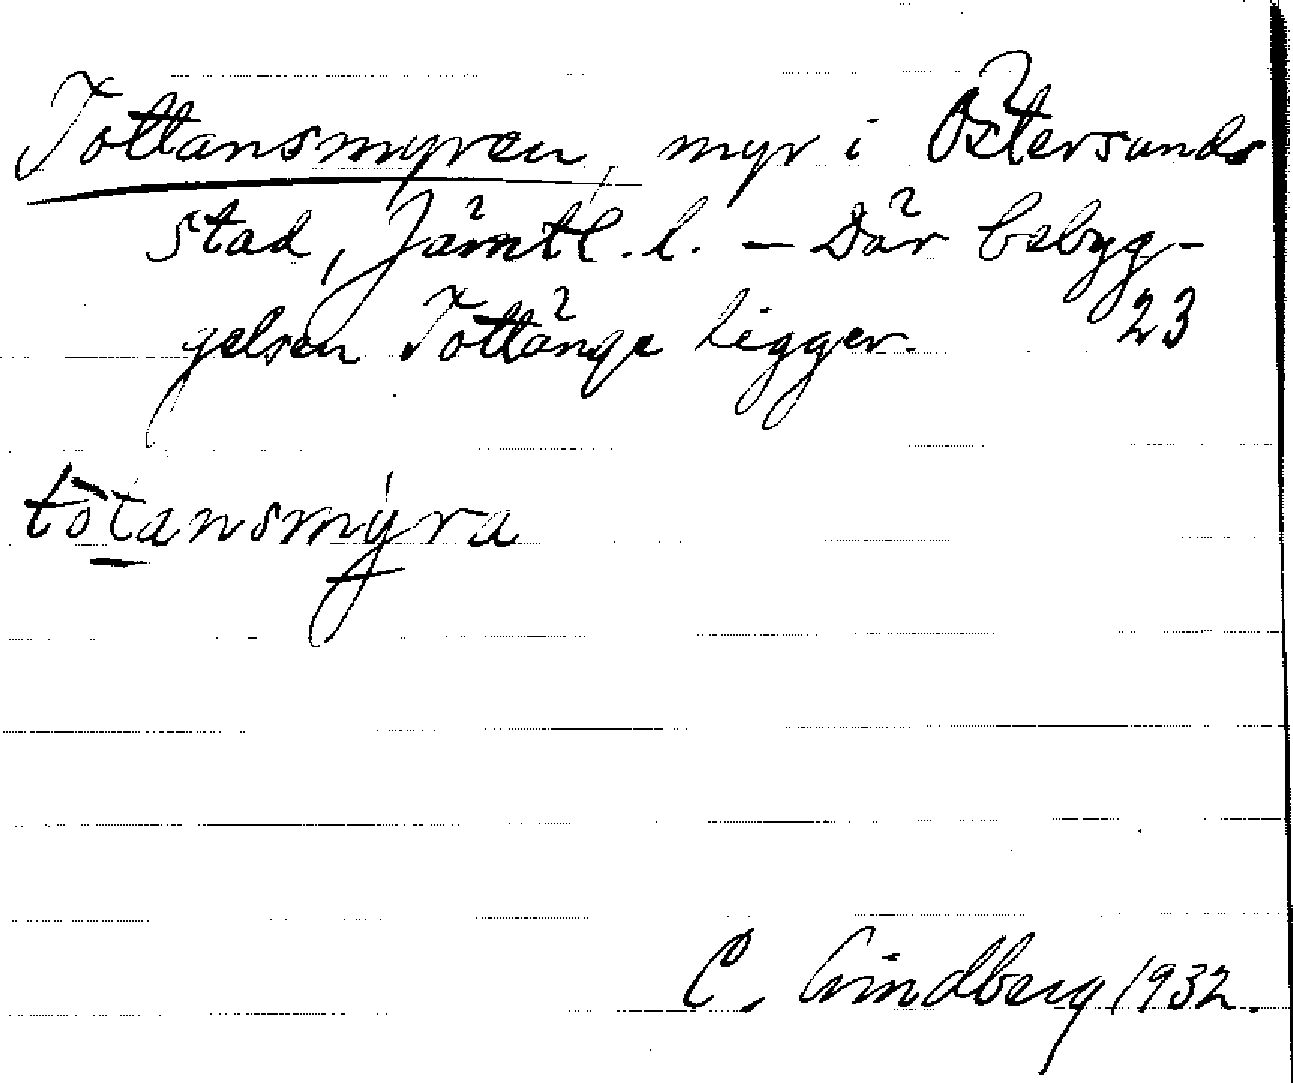 Tottansmyren, myr i Östersunds
stad, Jämtl. l. – Där bebyg-
gelsen Tottänge ligger.
23
tōtansmýra
C. Lindberg 1932.